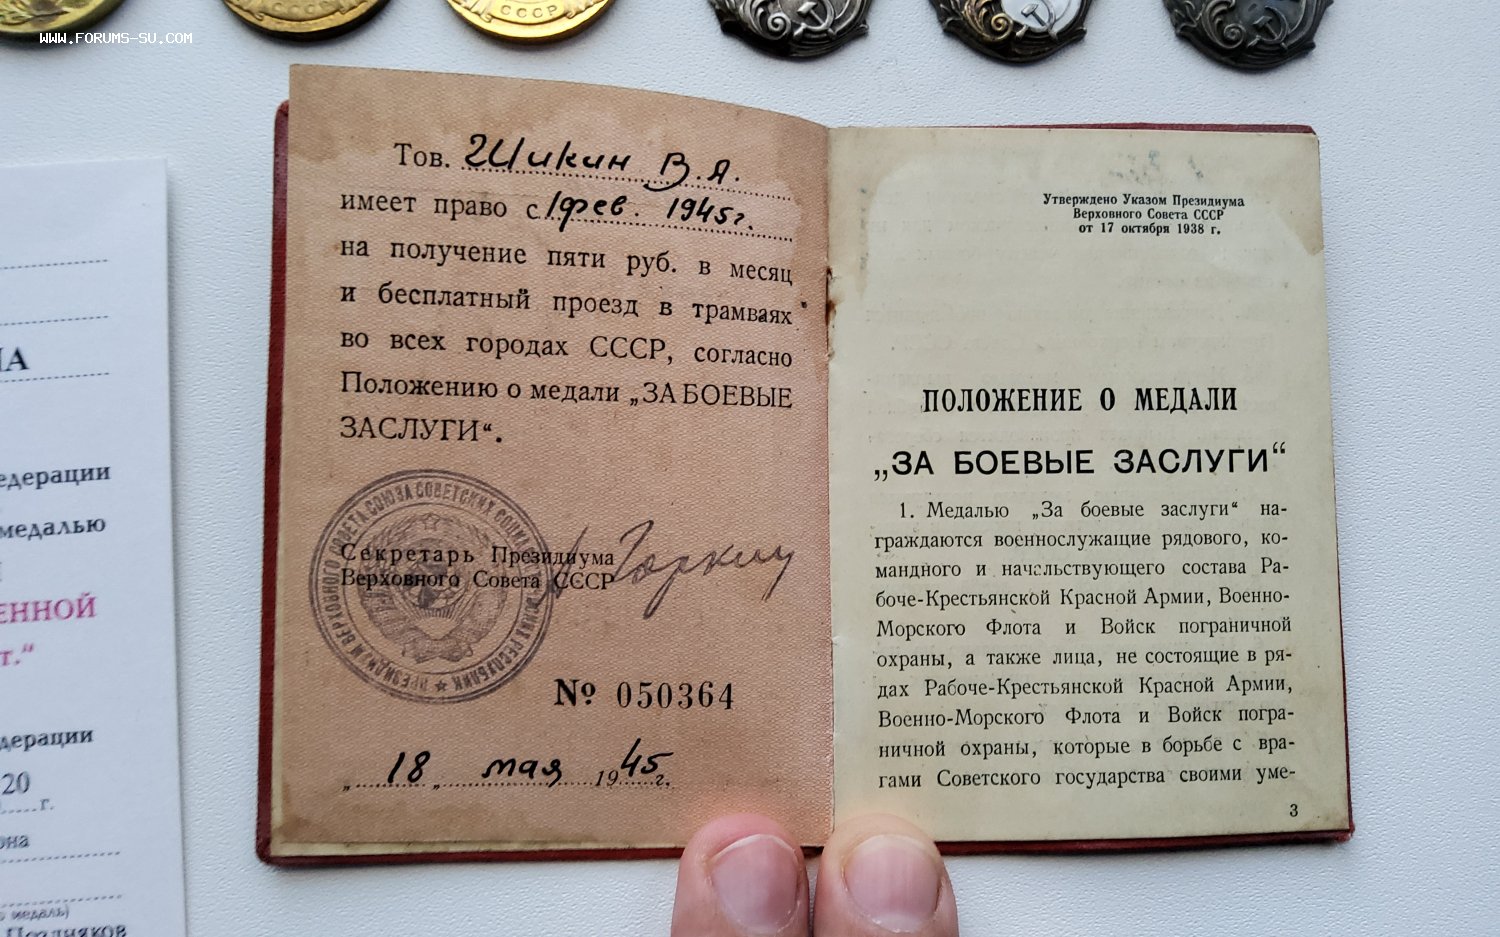 WWW.FORUMS-SU.COM
СССР
СССР
Тов. Шикин В.А.
имеет право с 1 фев. 1945 г.
на получение пяти руб. в месяц
и бесплатный проезд в трамваях
во всех городах СССР, согласно
Положению о медали „ЗА БОЕВЫЕ
ЗАСЛУГИ“.
Секретарь Президиума
Верховного Совета СССР
Горкин
№ 050364
„ 18 „ мая 1945 г.
Утверждено Указом Президиума
Верховного Совета СССР
от 17 октября 1938 г.
ПОЛОЖЕНИЕ О МЕДАЛИ
„ЗА БОЕВЫЕ ЗАСЛУГИ“
1. Медалью „За боевые заслуги“ на-
граждаются военнослужащие рядового, ко-
мандного и начальствующего состава Ра-
боче-Крестьянской Красной Армии, Военно-
Морского Флота и Войск пограничной
охраны, а также лица, не состоящие в ря-
дах Рабоче-Крестьянской Красной Армии,
Военно-Морского Флота и Войск погра-
ничной охраны, которые в борьбе с вра-
гами Советского государства своими уме-
3
НА
едерации
медалью
ЕННОЙ
т.“
дерации
20
г.
она
медаль)
Поздняков